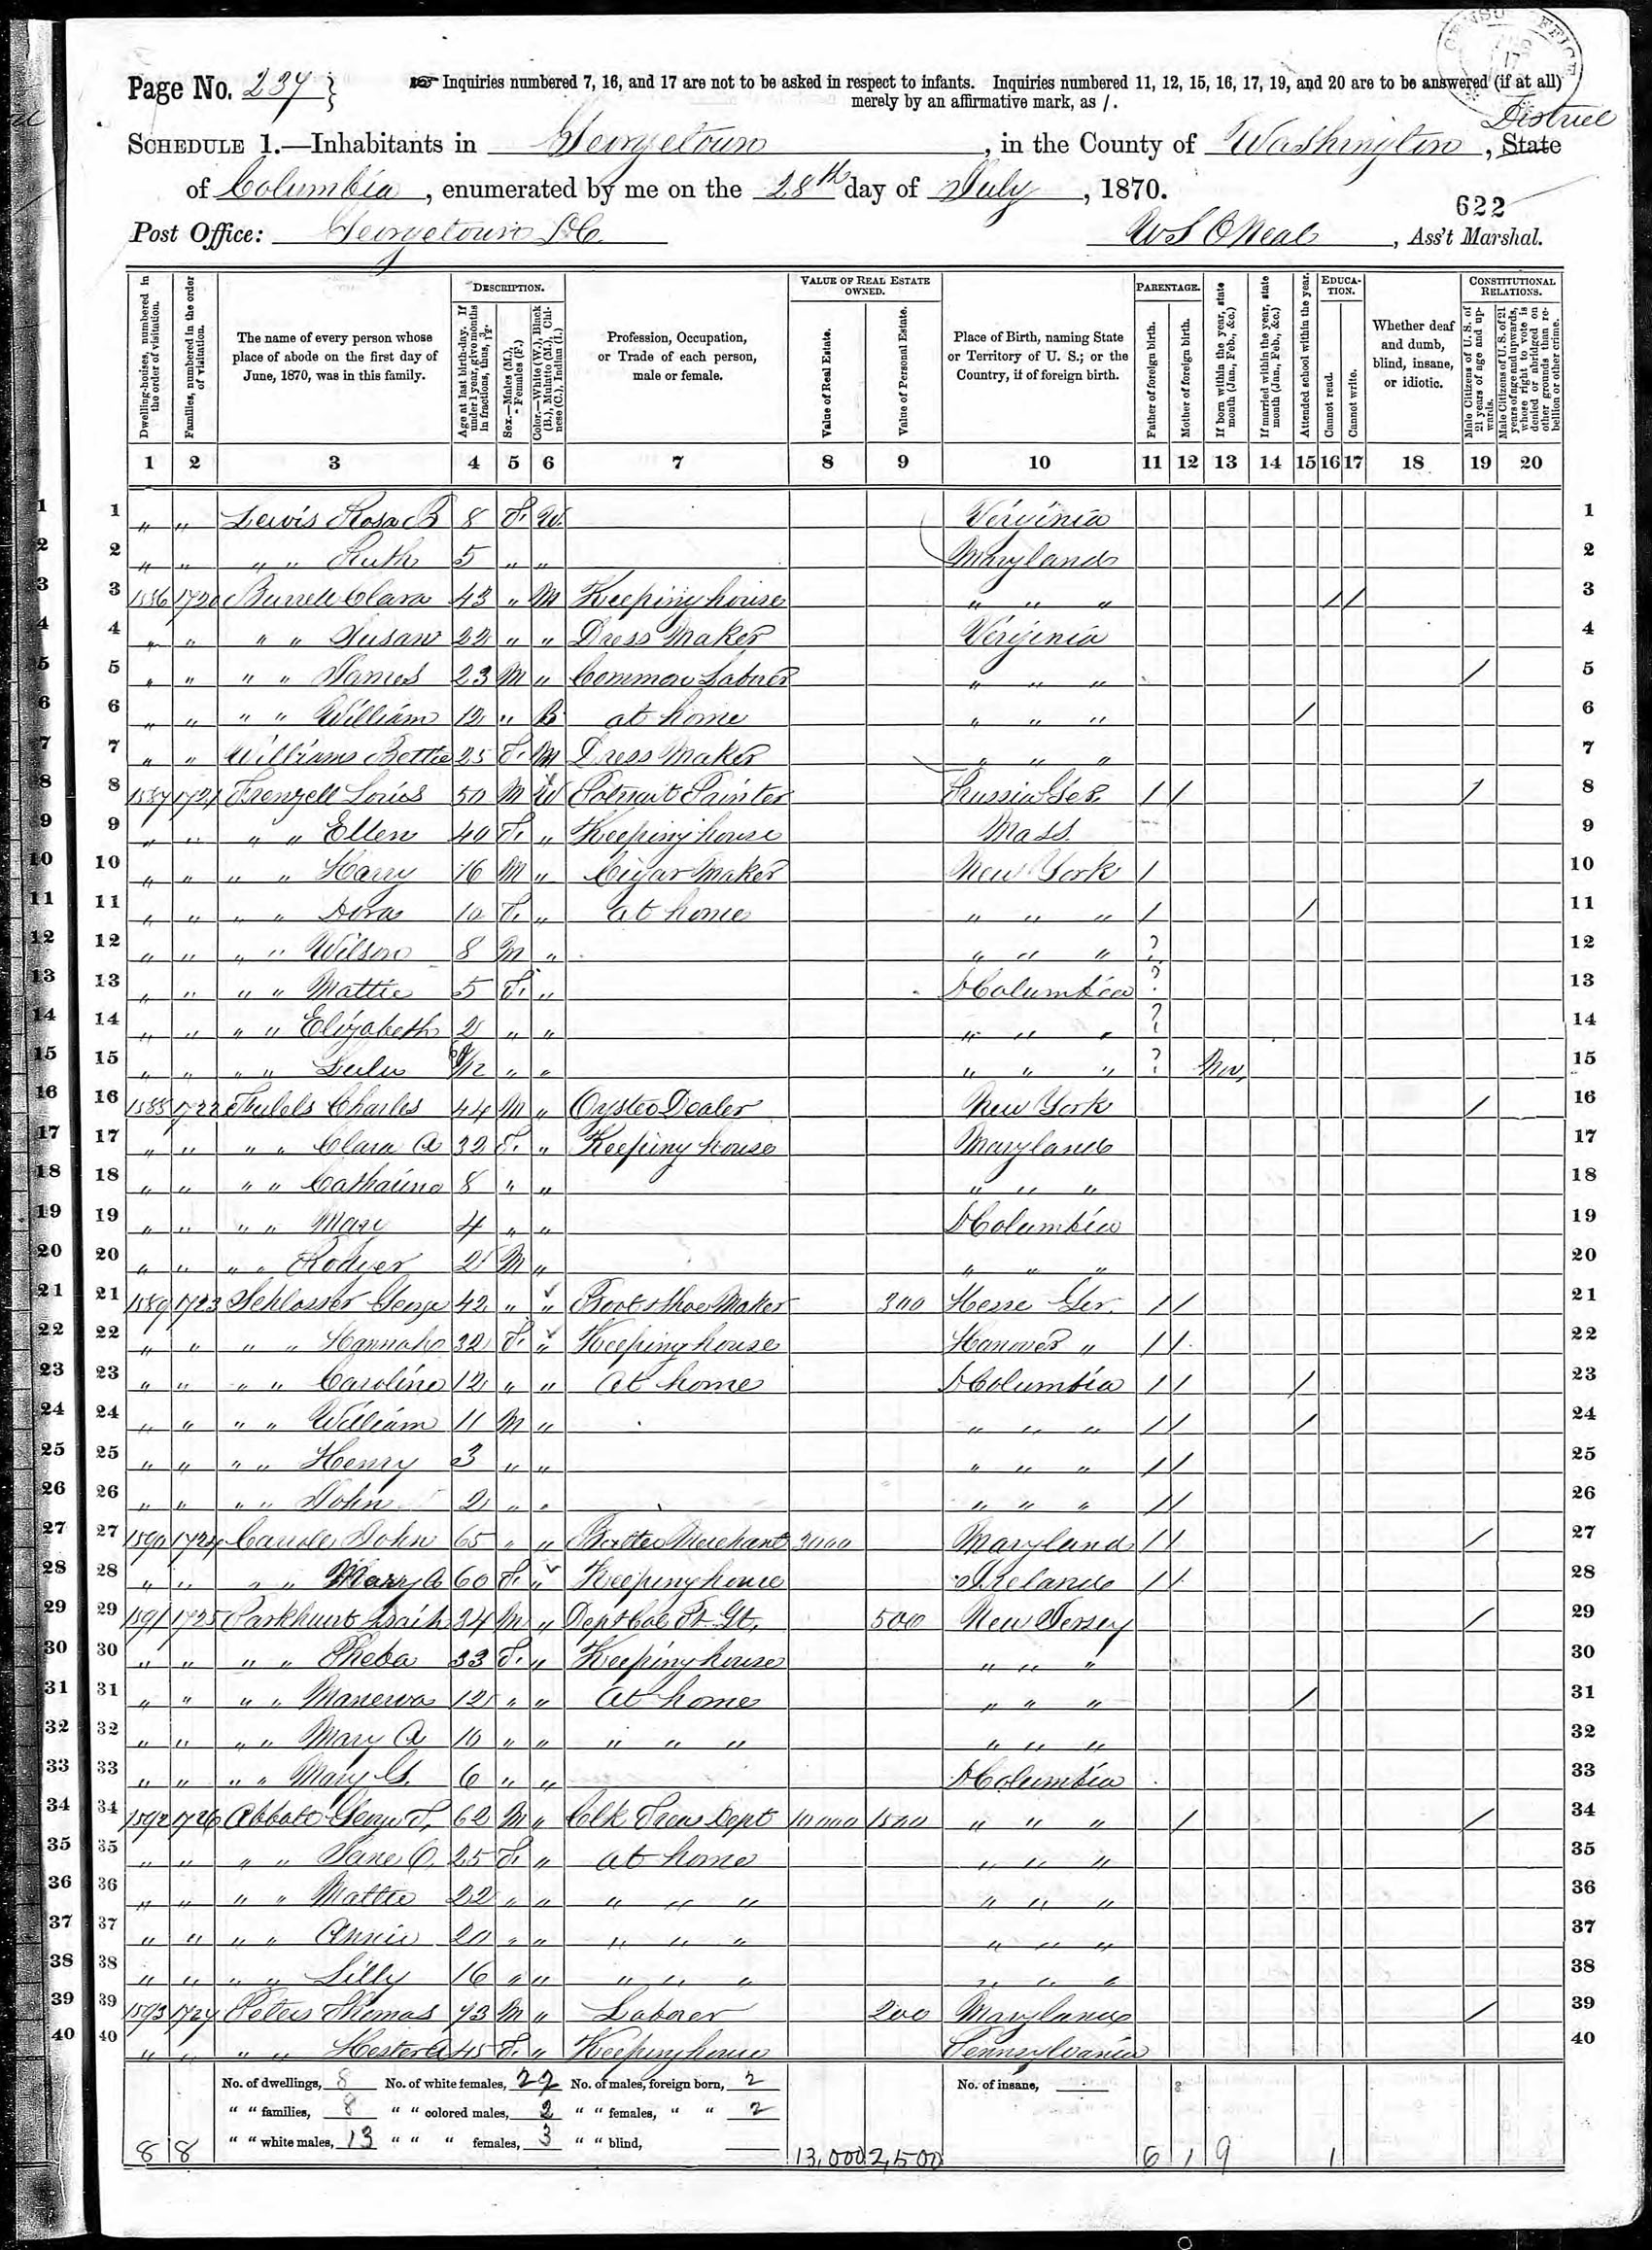 CENSUS OFFICE
17
Page No. 237 } Inquiries numbered 7, 16, and 17 are not to be asked in respect to infants. Inquiries numbered 11, 12, 15, 16, 17, 19, and 20 are to be answered (if at all)
merely by an affirmative mark, as /.
District
SCHEDULE 1.—Inhabitants in Georgetown, in the County of Washington, State
of Columbia, enumerated by me on the 28th day of July, 1870.
622
Post Office: Georgetown DC W S O Neal, Ass't Marshal.
Dwelling-houses, numbered in the order of visitation.
Families, numbered in the order of visitation.
The name of every person whose place of abode on the first day of June, 1870, was in this family.
DESCRIPTION.
Age at last birth-day. If under 1 year, give months in fractions, thus, 3/12.
Sex.—Males (M.), Females (F.)
Color.—White (W.), Black (B.), Mulatto (M.), Chinese (C.), Indian (I.)
Profession, Occupation, or Trade of each person, male or female.
VALUE OF REAL ESTATE OWNED.
Value of Real Estate.
Value of Personal Estate.
Place of Birth, naming State or Territory of U. S.; or the Country, if of foreign birth.
PARENTAGE.
Father of foreign birth.
Mother of foreign birth.
If born within the year, state month (Jan., Feb., &c.)
If married within the year, state month (Jan., Feb., &c.)
Attended school within the year.
EDUCATION.
Cannot read.
Cannot write.
Whether deaf and dumb, blind, insane, or idiotic.
CONSTITUTIONAL RELATIONS.
Male Citizens of U. S. of 21 years of age and upwards.
Male Citizens of U. S. of 21 years of age and upwards, whose right to vote is denied or abridged on other grounds than rebellion or other crime.
1 2 3 4 5 6 7 8 9 10 11 12 13 14 15 16 17 18 19 20
1 " " Lewis Rosa B 8 F. W. Virginia 1
2 " " " " Ruth 5 " " Maryland 2
3 1586 1720 Burrell Clara 43 " M Keeping house " " " / / 3
4 " " " " Susan 22 " " Dress Maker Virginia 4
5 " " " " James 23 M " Common Laborer " " " / 5
6 " " " " William 12 " B at home " " " / 6
7 " " Williams Bettie 25 F. M Dress Maker " " " 7
8 1587 1721 Frenzell Louis 50 M W Potrait Painter Prussia Ger. / / / 8
9 " " " " Ellen 40 F. " Keeping house Mass. 9
10 " " " " Harry 16 M " Cigar Maker New York / 10
11 " " " " Dora 10 F. " at home " " " / / 11
12 " " " " Wilson 8 M " " " " ? 12
13 " " " " Mattie 5 F. " D Columbia ? 13
14 " " " " Elizabeth 2 " " " " " ? 14
15 " " " " Lulu /12 " " " " " ? Nov, 15
16 1588 1722 Charles 44 M " Oyster Dealer New York / 16
17 " " " " Clara A 32 F. " Keeping house Maryland 17
18 " " " " Catharine 8 " " " " " 18
19 " " " " Mary 4 " " D Columbia 19
20 " " " " Rodger 2 M " " " " 20
21 1589 1723 Schlosser George 42 " " Boot & Shoe Maker 300 Hesse Ger. / / 21
22 " " " " Hannah 32 F. " Keeping house Hanover " / / 22
23 " " " " Caroline 12 " " at home D Columbia / / / 23
24 " " " " William 11 M " " " " / / / 24
25 " " " " Henry 3 " " " " " / / 25
26 " " " " John 2 " " " " " / / 26
27 1590 1724 John 65 " " Merchant 3000 Maryland / / / 27
28 " " " " Mary A 60 F. " Keeping house Ireland / / 28
29 1591 1725 Parkhurst 34 M " 500 New Jersey / 29
30 " " " " Pheba 33 F. " Keeping house " " " 30
31 " " " " Manerva 12 " " at home " " " / 31
32 " " " " Mary A 10 " " " " " " " " 32
33 " " " " Mary G. 6 " " D Columbia 33
34 1592 1726 Abbott George T. 62 M " Clk Treas Dept 10000 1500 " " " / / 34
35 " " " " Jane C. 25 F. " at home " " " 35
36 " " " " Mattie 22 " " " " " " " " 36
37 " " " " Annie 20 " " " " " " " " 37
38 " " " " Lilly 16 " " " " " " " " 38
39 1593 1727 Peters Thomas 73 M " Laborer 200 Maryland / 39
40 " " " " Hester A 45 F. " Keeping house Pennsylvania 40
No. of dwellings, 8 No. of white females, 22 No. of males, foreign born, 2 No. of insane,
" " families, 8 " " colored males, 2 " " females, " " 2
" " white males, 13 " " " females, 3 " " blind,
8 8 13,000 2,500 6 1 9 1